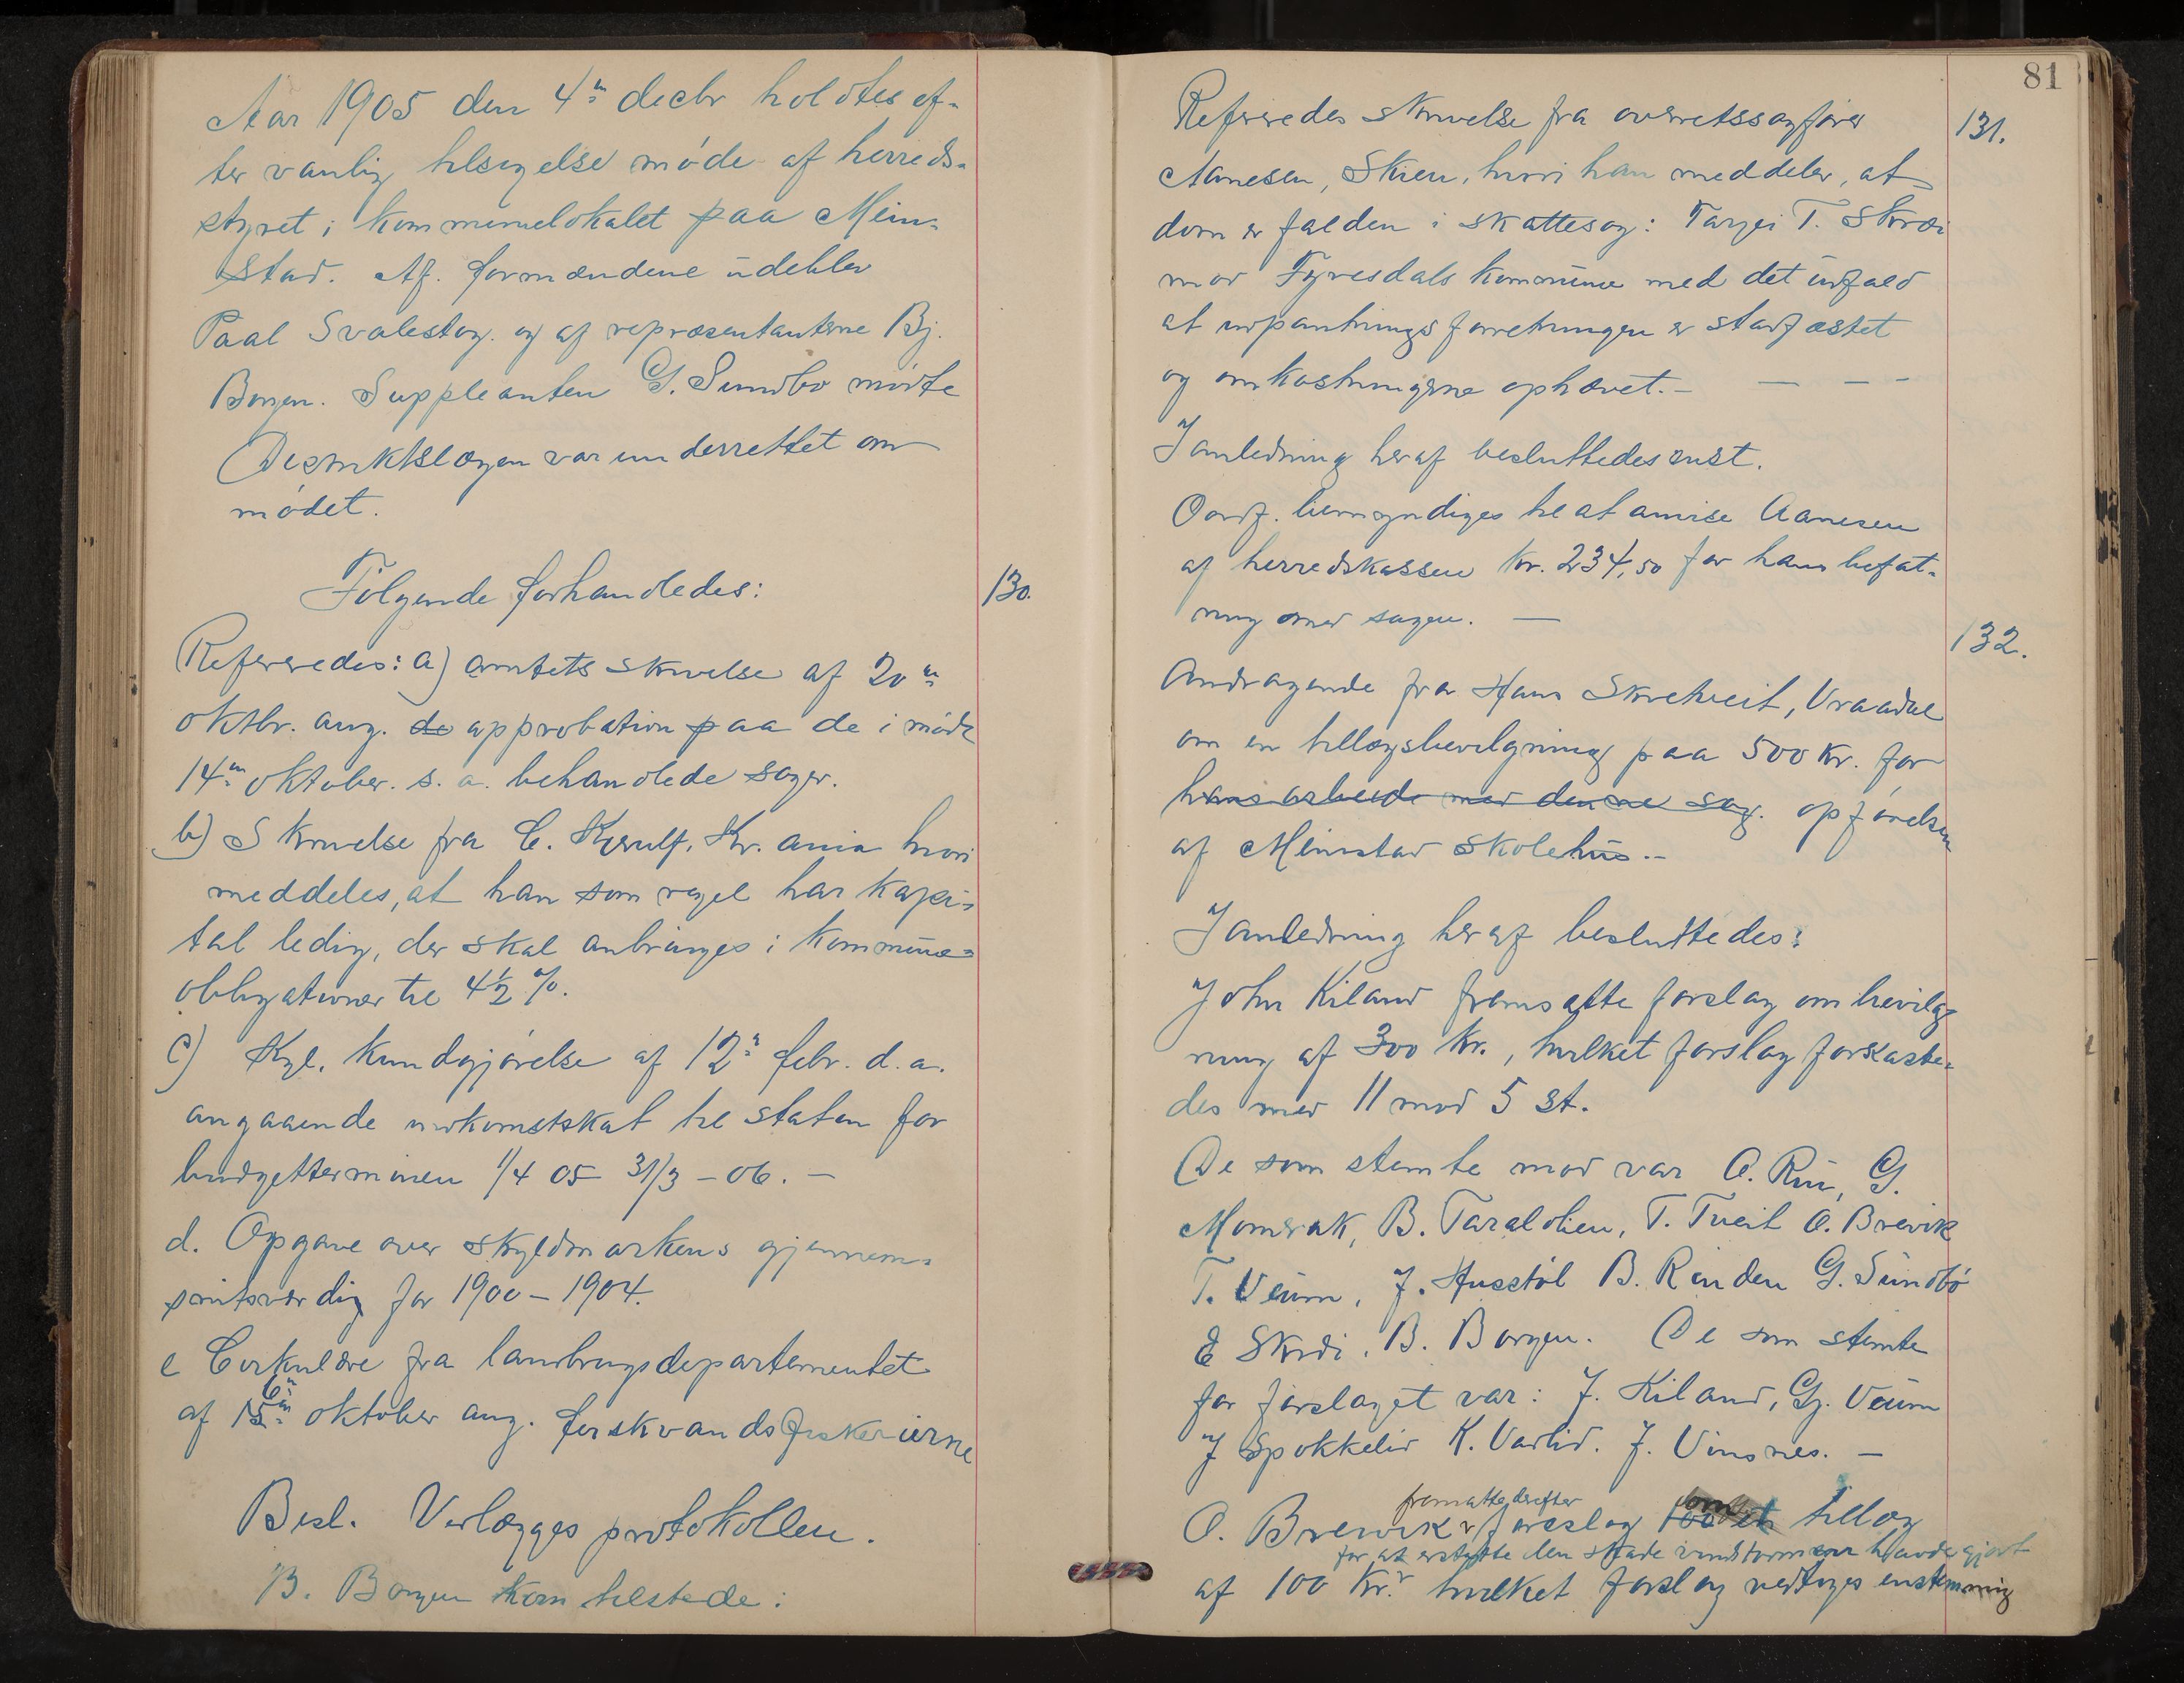 Aar 1905 den 4de decbr holdtes ef-
ter vanlig tilsigelse møde af herreds-
styret i kommunelokalet paa Mein-
stad. Af formændene udeblev
Paal Svalestog. og af repræsentanterne Bj.
Borgen. Suppleanten G. Sundbø mødte
Distriktslægen var underrettet om
mødet.
Følgende forhandledes:
130.
Refereredes: a) amtets skrivelse af 20de
oktbr. ang. de approbation paa de i møde
14de oktober. s. a. behandlede sager.
b) Skrivelse fra C. Kjerulf, Kr.ania hvori
meddeles, at han som regel har kapi-
tal ledig, der skal anbringes i kommune-
obligationer til 4½ %.
c) Kgl. kundgjørelse af 12te febr. d. a.
angaaende indkomstskat til staten for
budgetterminen 1/4 05 31/3 - 06. -
d. Opgave over skyldmarkens gjennem-
snitsværdig for 1900 - 1904.
e Cirkulære fra landbrugsdepartementet
af 16de oktober ang. ferskvandsfiskerierne
Besl. Vedlægges protokollen.
B. Borgen kom tilstede:
81
131.
Refereredes skrivelse fra overretssagfører
Aanesen, Skien, hvori han meddeler, at
dom er falden i skattesag: Targei T. Skrei
mod Fyresdals kommune med det udfald
at udpantningsforretningen er stadfæstet
og omkostningerne ophævet. - — - -
I anledning heraf besluttedes enst.
Ordf. bemyndiges til at anvise Aanesen
af herredskassen kr. 234,50 for hans befat-
ning med sagen. —
132.
Andragende fra Hans Skretveit, Vraadal
om en tillægsbevilgning paa 500 kr. for
hans arbeide med denne sag. opførelsen
af Meinstad skolehus. -
I anledning heraf besluttedes:
John Kiland fremsatte forslag om bevilg-
ning af 300 kr., hvilket forslag forkaste-
des med 11 mod 5 st.
De som stemte mod var O. Rui, G.
Momrak, B. Taraldlien, T. Tveit O. Brevik
T. Veum, J. Husstøl B. Rinden G. Sundbø
E Skrdi, B. Borgen. De som stemte
for forslaget var: J. Kiland, Gj. Veum
J Spokkelid K. Vadlid. J. Vinsnes. —
fremsatte derefter
O. Brevik forslag om et tillæg
for at erstatte den skade vindstormen havde gjort
af 100 kr. hvilket forslag vedtoges enstemmig